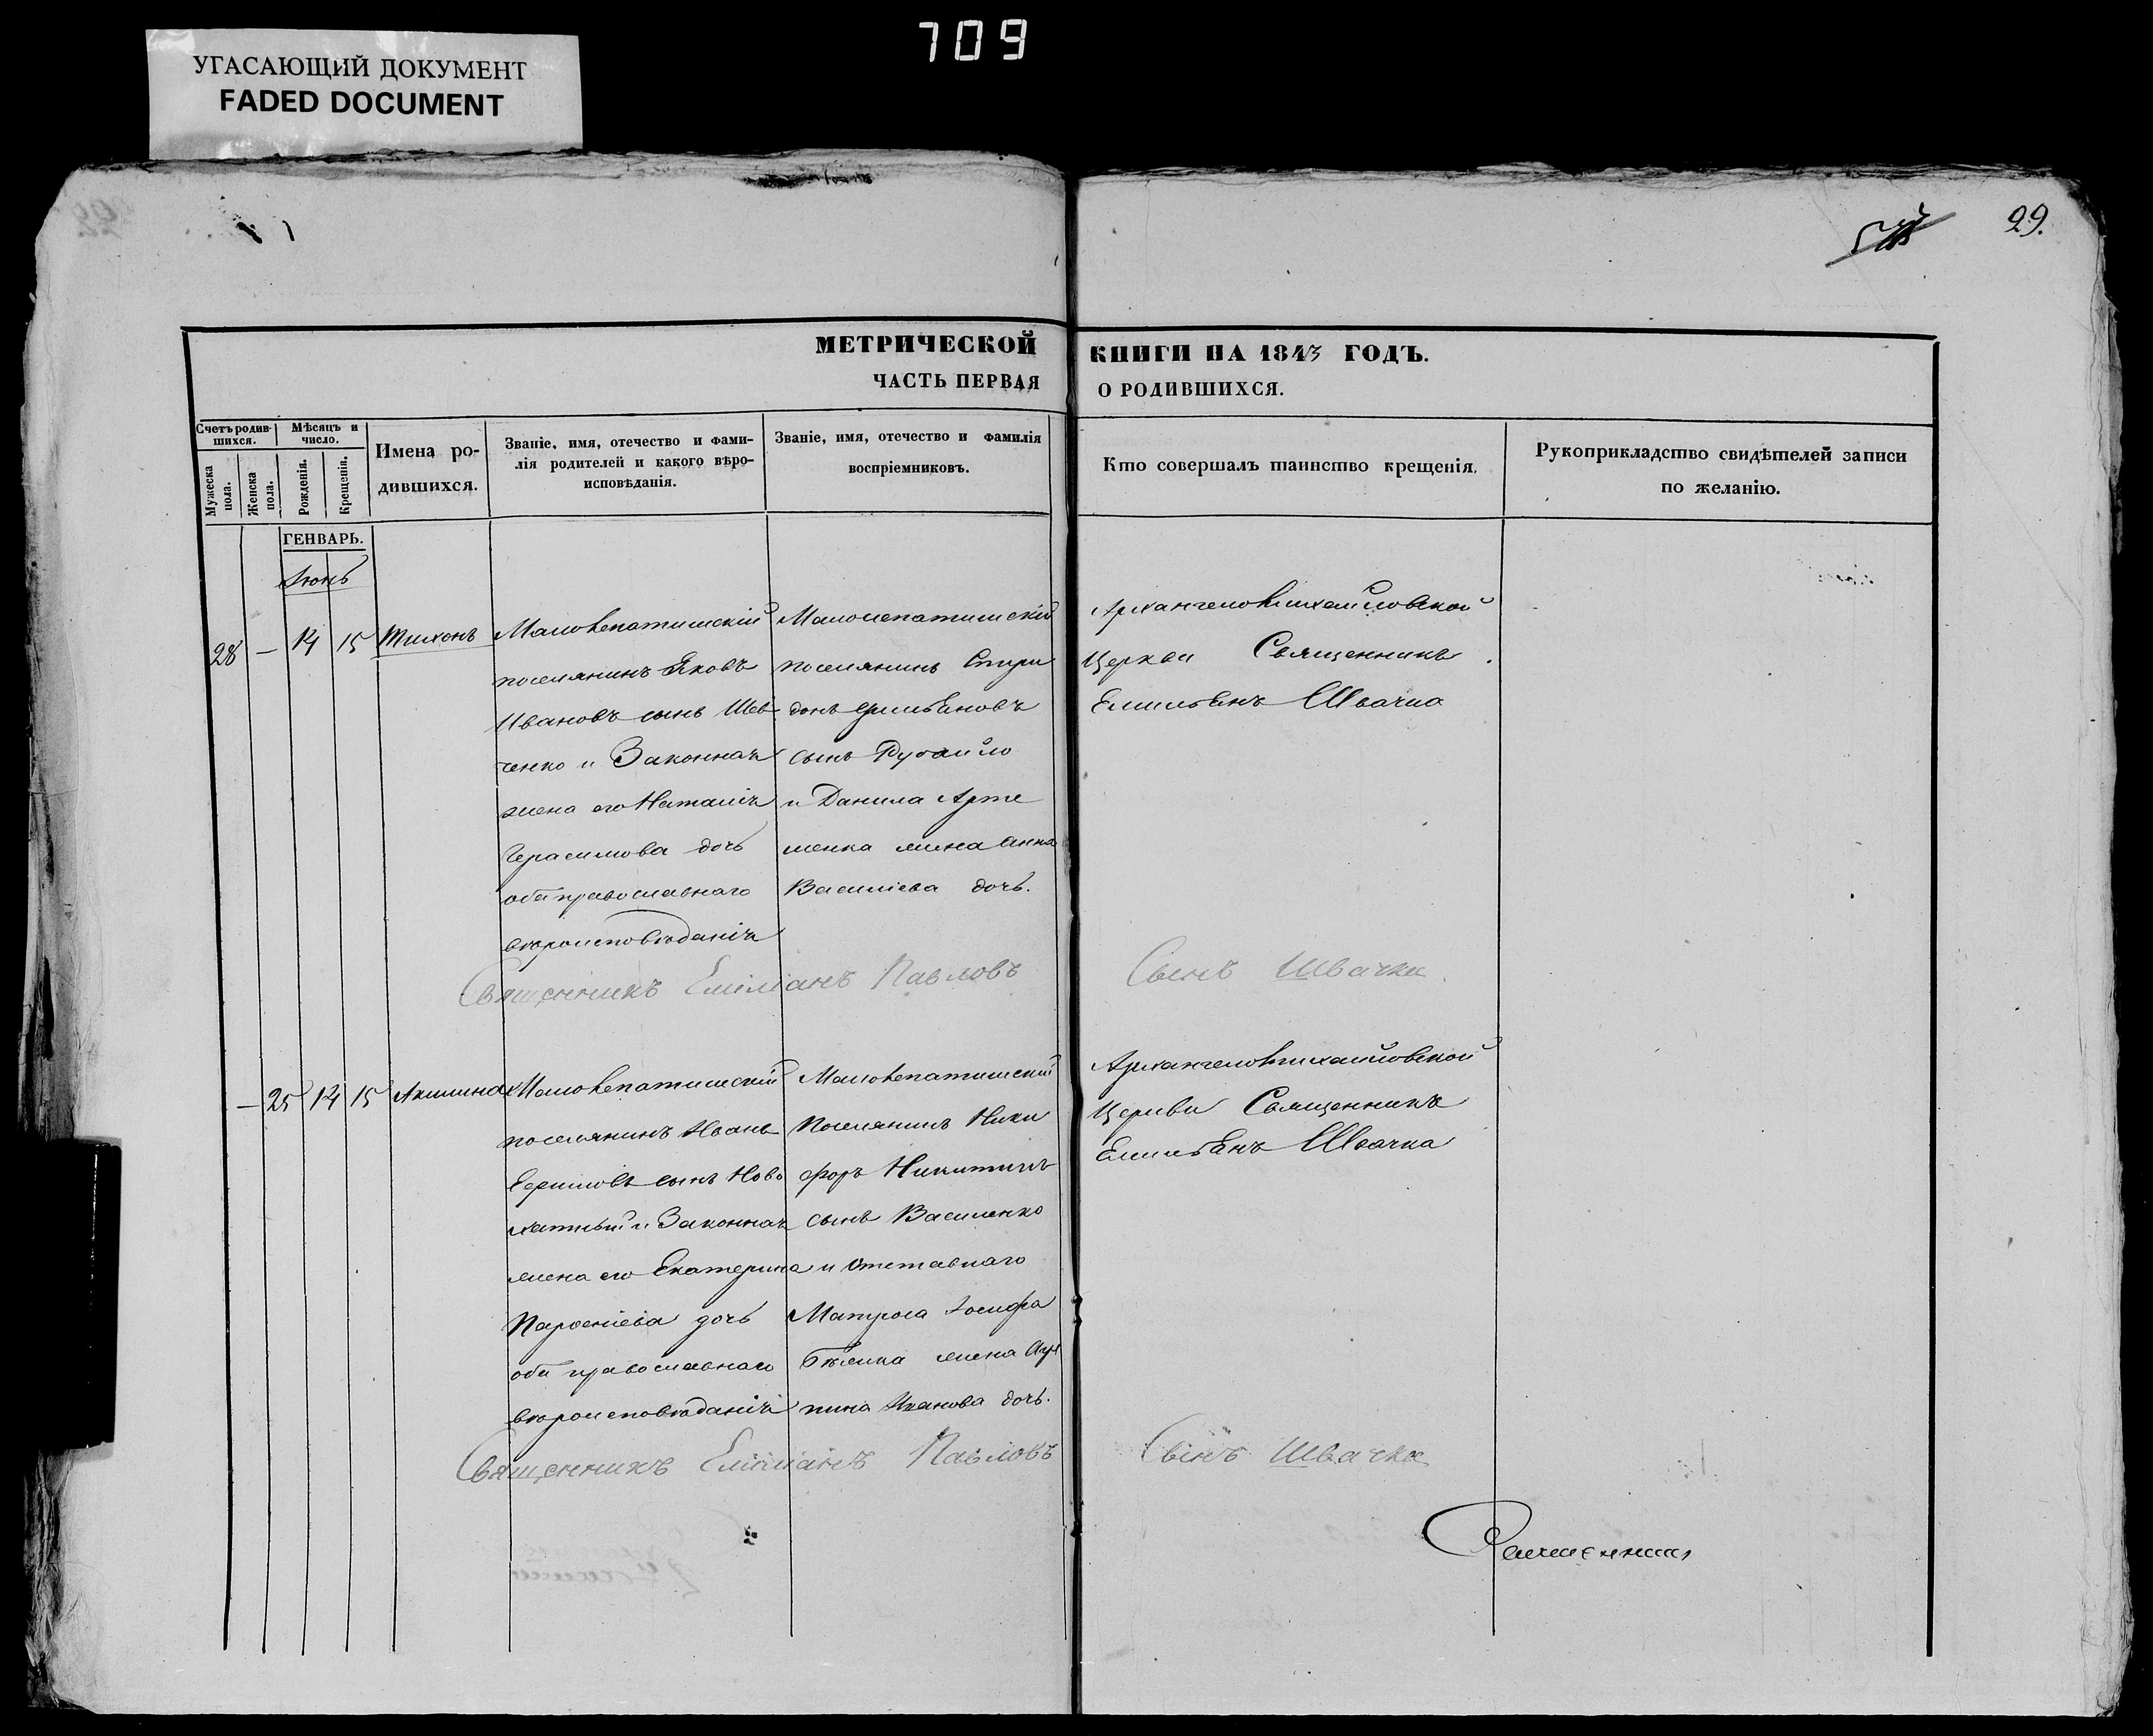 709
УГАСАЮЩИЙ ДОКУМЕНТ
FADED DOCUMENT
29.
МЕТРИЧЕСКОЙ КНИГИ НА 1843 ГОДЪ.
ЧАСТЬ ПЕРВАЯ О РОДИВШИХСЯ.
Счетъ родившихся.
Мужеска пола.
Женска пола.
Мѣсяцъ и число.
Рожденія.
Крещенія.
Имена родившихся.
Званіе, имя, отечество и фамилія родителей и какого вѣроисповѣданія.
Званіе, имя, отечество и фамилія воспріемниковъ.
Кто совершалъ таинство крещенія.
Рукоприкладство свидѣтелей записи по желанію.
ГЕНВАРЬ.
Іюнь
28 — 14 15 Тихонъ
Малолепатишскій
поселянинъ Яковъ
Ивановъ сынъ Шев
ченко и Законная
жена его Наталія
Герасимова дочь
оба православнаго
вѣроисповѣданія
Малолепатишскій
поселянинъ Спири
донъ Емильяновъ
сынъ Рубайло
и Данила Арте
менка жена Анна
Василіева дочь.
Архангеломихайловской
Церкви Священникъ
Емильянъ Швачка
Священникъ Емиліанъ Павловъ Сынъ Швачка
— 25 14 15 Акилина
Малолепатишскій
поселянинъ Иванъ
Ефимовъ сынъ Ново
хатный и Законная
жена его Екатерина
Парфеніева дочь
оба православнаго
вѣроисповѣданія
Малолепатишскій
Поселянинъ Ники
форъ Никитинъ
сынъ Василенко
и Отставнаго
Матроса Іосифа
Бѣлика жена Агри
пина Иванова дочь.
Архангеломихайловской
Церкви Священникъ
Емильянъ Швачка
Священникъ Емиліанъ Павловъ Сынъ Швачка